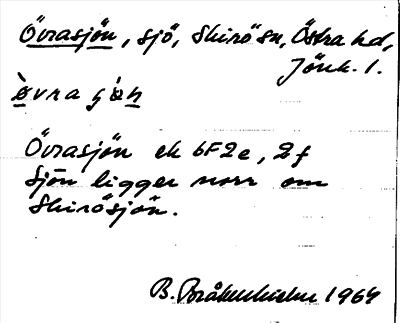 Övrasjön, sjö, Skirö sn, Östra hd,
Jönk. l.
ø̀vra ʂø̀n
Övrasjön ek 6F2e, 2f
Sjön ligger norr om
Skirösjön.
B. 1964